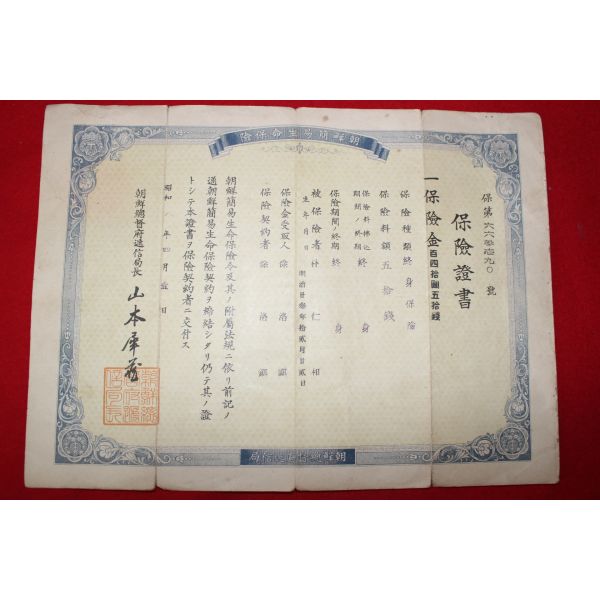 朝鮮簡易生命保險
保險證書
一保險金百四拾圓五拾錢
保險種類終身保險
保險料額五拾錢
保險料拂込期間ノ終期終身
保險期間ノ終期終身
被保險者 仁相
生年月日明治 年拾貳月廿貳日
保險金受取人徐洛
保險契約者徐洛
朝鮮簡易生命保險令及其ノ附屬法規ニ依リ前記ノ
通朝鮮簡易生命保險契約ヲ締結シタリ仍テ其ノ證
トシテ本證書ヲ保險契約者ニ交付ス
昭和 年四月 日
朝鮮總督府遞信局長 山本犀藏
朝鮮總督府遞信局